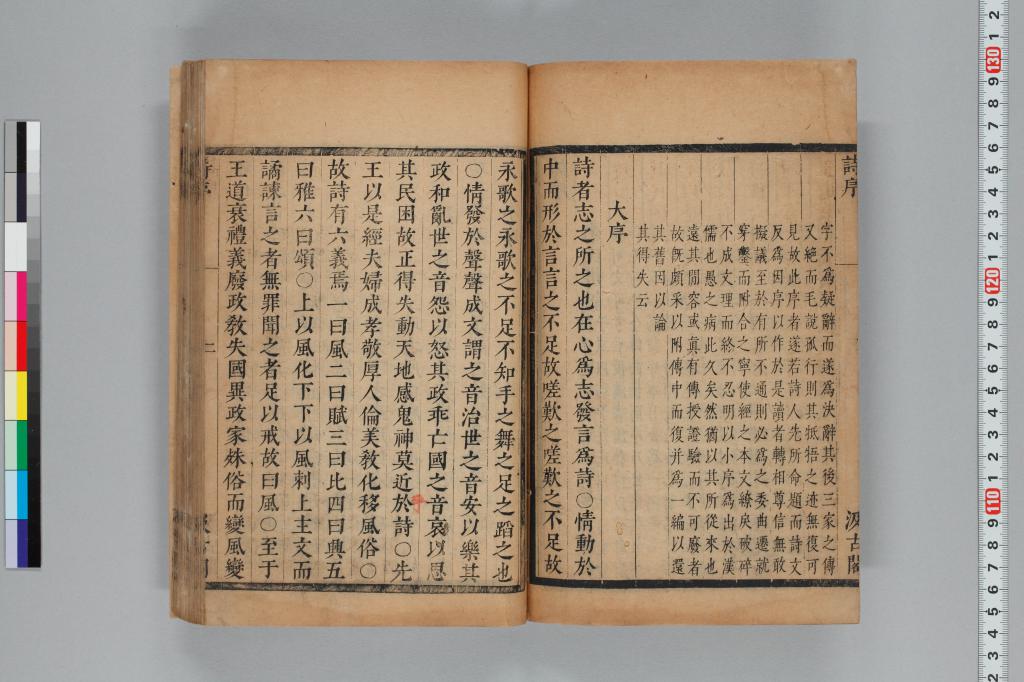 詩序
汲古閣
字不爲疑辭而遂爲決辭其後三家之傳
又絕而毛說孤行則其抵牾之迹無復可
見故此序者遂若詩人先所命題而詩文
反爲因序以作於是讀者轉相尊信無敢
擬議至於有所不通則必爲之委曲遷就
穿鑿而附合之寧使經之本文繚戾破碎
不成文理而終不忍明以小序爲出於漢
儒也愚之病此久矣然猶以其所從來也
遠其閒容或眞有傳授證驗而不可廢者
故旣頗采以附傳中而復并爲一編以還
其舊因以論
其得失云
大序
詩者志之所之也在心爲志發言爲詩○情動於
中而形於言言之不足故嗟歎之嗟歎之不足故
永歌之永歌之不足不知手之舞之足之蹈之也
○情發於聲聲成文謂之音治世之音安以樂其
政和亂世之音怨以怒其政乖亡國之音哀以思
其民困故正得失動天地感鬼神莫近於詩○先
王以是經夫婦成孝敬厚人倫美敎化移風俗○
故詩有六義焉一曰風二曰賦三曰比四曰興五
曰雅六曰頌○上以風化下下以風刺上主文而
譎諫言之者無罪聞之者足以戒故曰風○至于
王道衰禮義廢政敎失國異政家殊俗而變風變